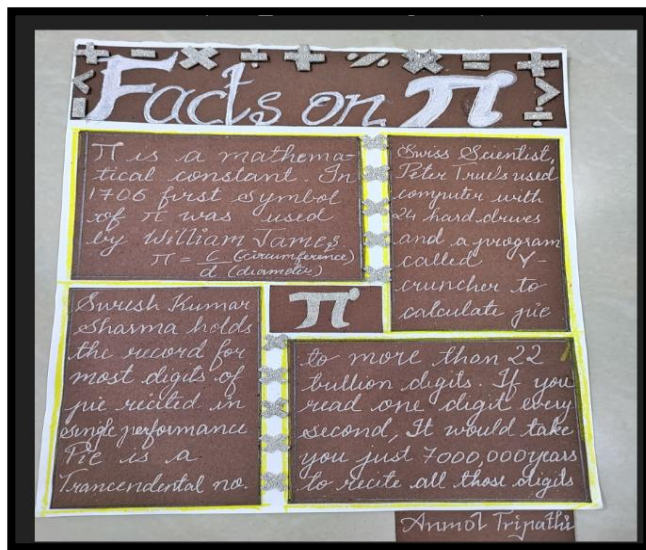 Facts on π
π is a mathema-
tical constant. In
1706 first symbol
of π was used
by William James
π = c (circumference)
d (diameter)
Swiss Scientist,
Peter Trueb used
computer with
24 hard drives
and a program
called Y-
cruncher to
calculate pie
Suresh Kumar
Sharma holds
the record for
most digits of
pie recited in
single performance
Pie is a
Trancendental no.
π
to more than 22
trillion digits. If you
read one digit every
second, It would take
you just 7000,000years
to recite all those digits
Anmol Tripathi